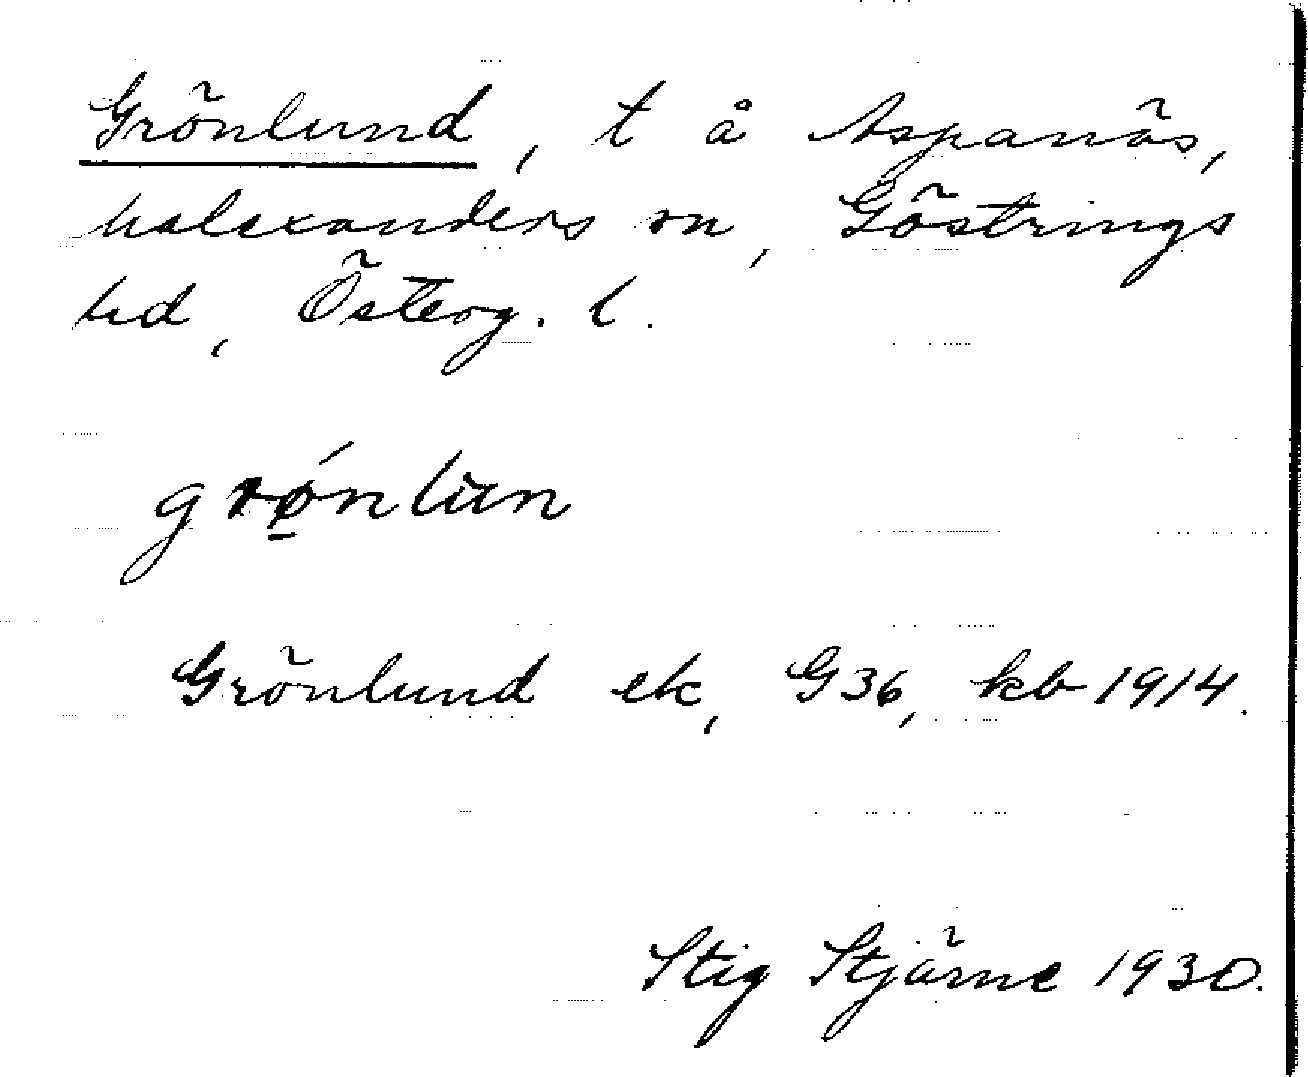 Grönlund, t å Aspanäs,
Malexanders sn, Göstrings
hd, Österg. l.
grǿnlun
Grönlund ek, G36, kb 1914.
Stig Stjärne 1930.